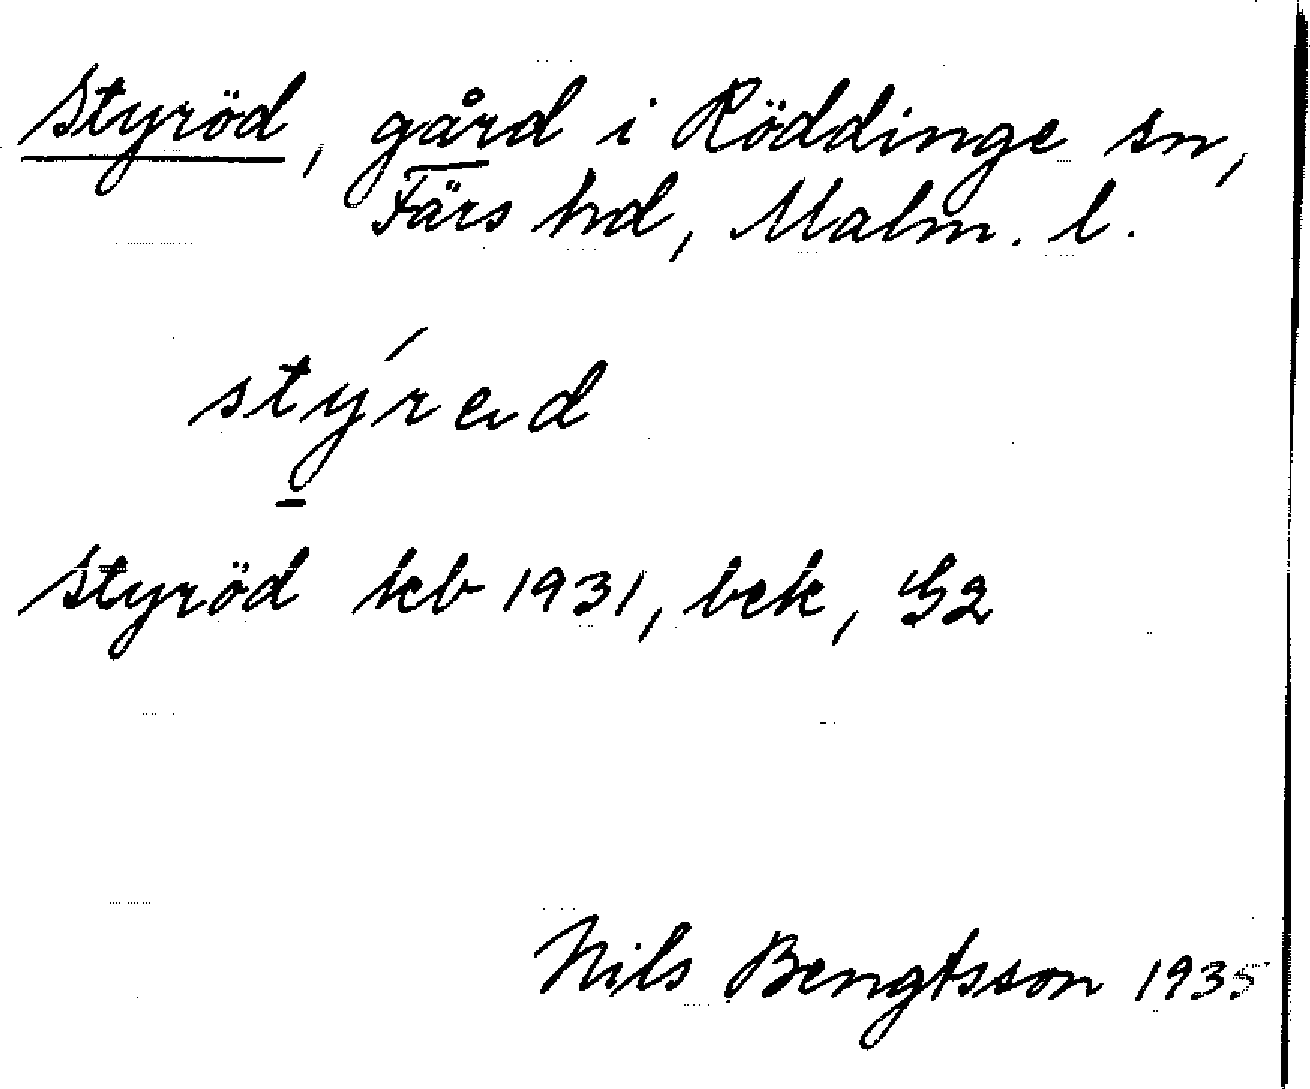 Styröd, gård i Röddinge sn,
Färs hd, Malm. l.
stý̠red
Styröd kb 1931, bek, G2
Nils Bengtsson 1935